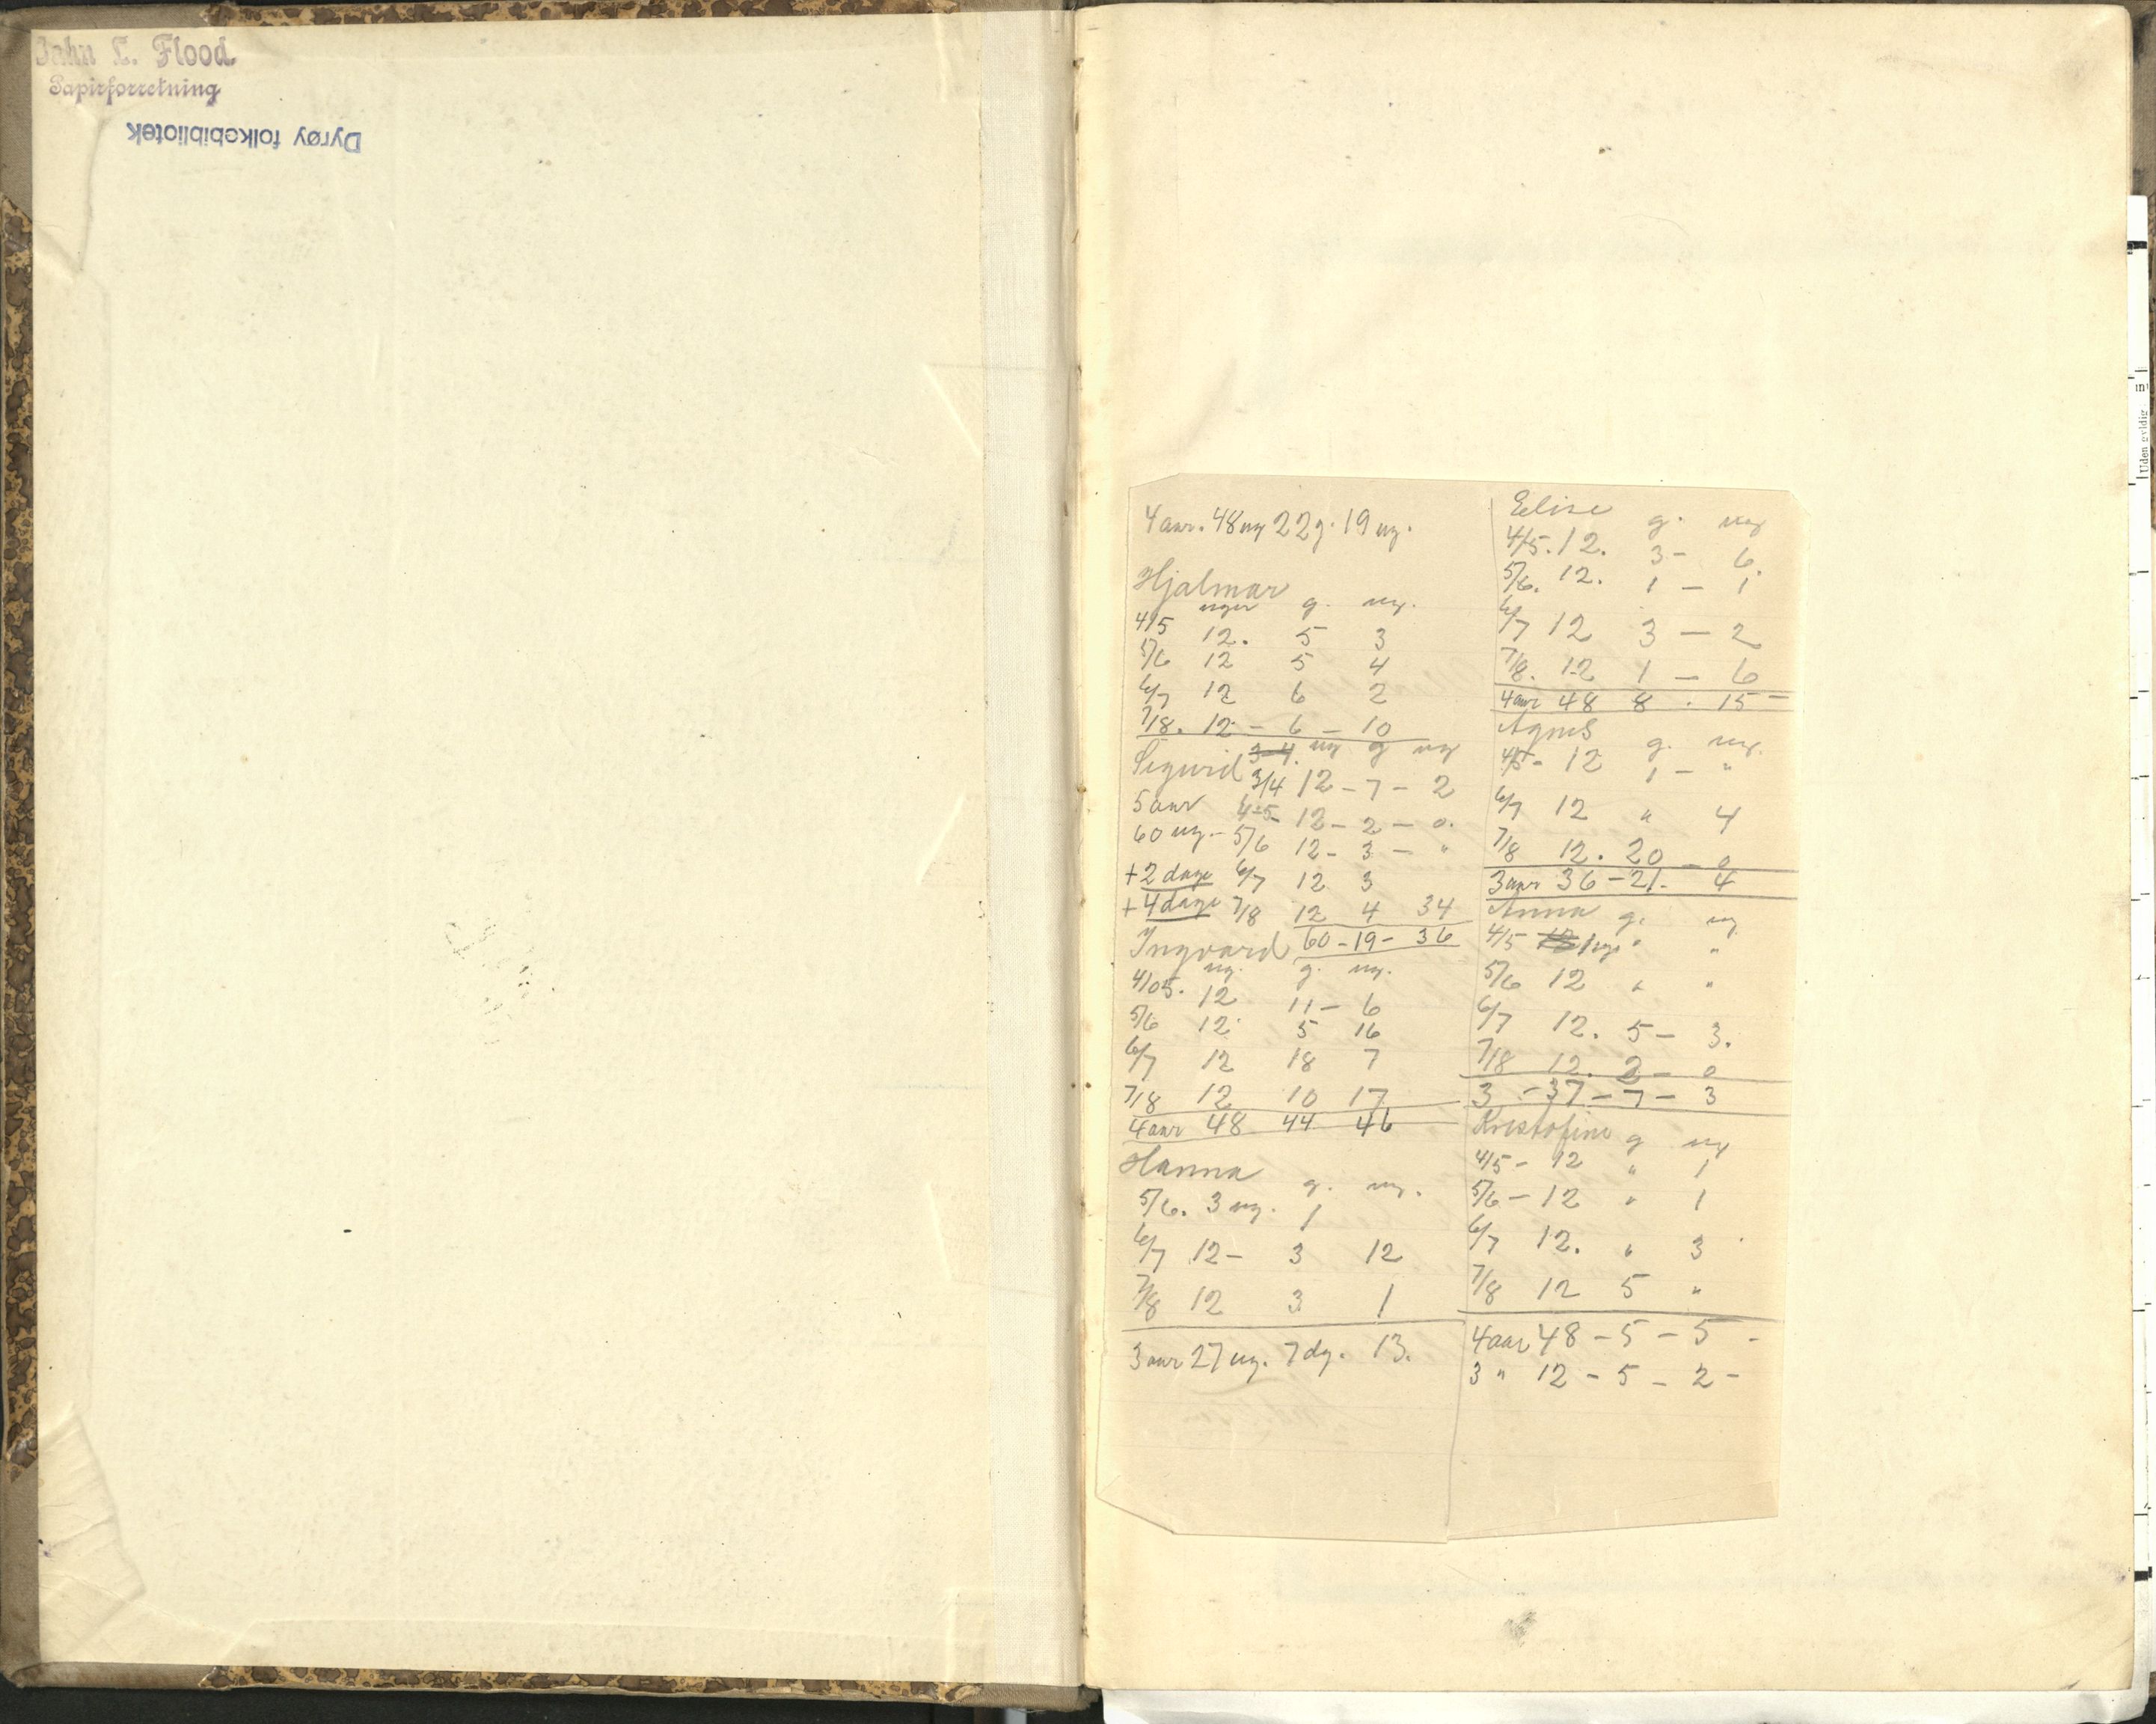 Jahn L. Flood
Papirforretning
Dyrøy folkebibliotek
4 aar. 48 ug 22 g. 19 ug.
Hjalmar
uger g. ug.
4/5 12. 5 3
5/6 12 5 4
6/7 12 6 2
7/8. 12 - 6 - 10
Sigurd 3-4. ug g ug
3/4 12 - 7 - 2
5 aar 4-5 12 - 2 - 0.
60 ug. - 5/6 12 - 3 - "
+ 2 dage 6/7 12 3
+ 4 dage 7/8 12 4 34
Ingvard 60 - 19 - 36
ug. g. ug.
4/05. 12 11 - 6
5/6 12 5 16
6/7 12 18 7
7/8 12 10 17
4 aar 48 44 46
Hanna
g. ug.
5/6. 3 ug. 1
6/7 12 - 3 12
7/8 12 3 1
3 aar 27 ug. 7 dg. 13.
Elise
g. ug
4/5. 12. 3 - 6.
5/6. 12. 1 - 1
6/7 12 3 - 2
7/8. 12 1 - 6
4 aar 48 8 . 15 -
Agnes
g. ug.
4/5 - 12 1 - "
6/7 12 " 4
7/8 12. 20 - 0
3 aar 36 - 21. 4
Anna g. ug
4/5 1 uge " "
5/6 12 " "
6/7 12. 5 - 3.
7/8 12. 2 - 0
3 - 37 - 7 - 3
Kristofine g ug
4/5 - 12 " 1
5/6 - 12 " 1
6/7 12. " 3
7/8 12 5 "
4 aar 48 - 5 - 5 -
3 " 12 - 5 - 2 -
Uden gyldig